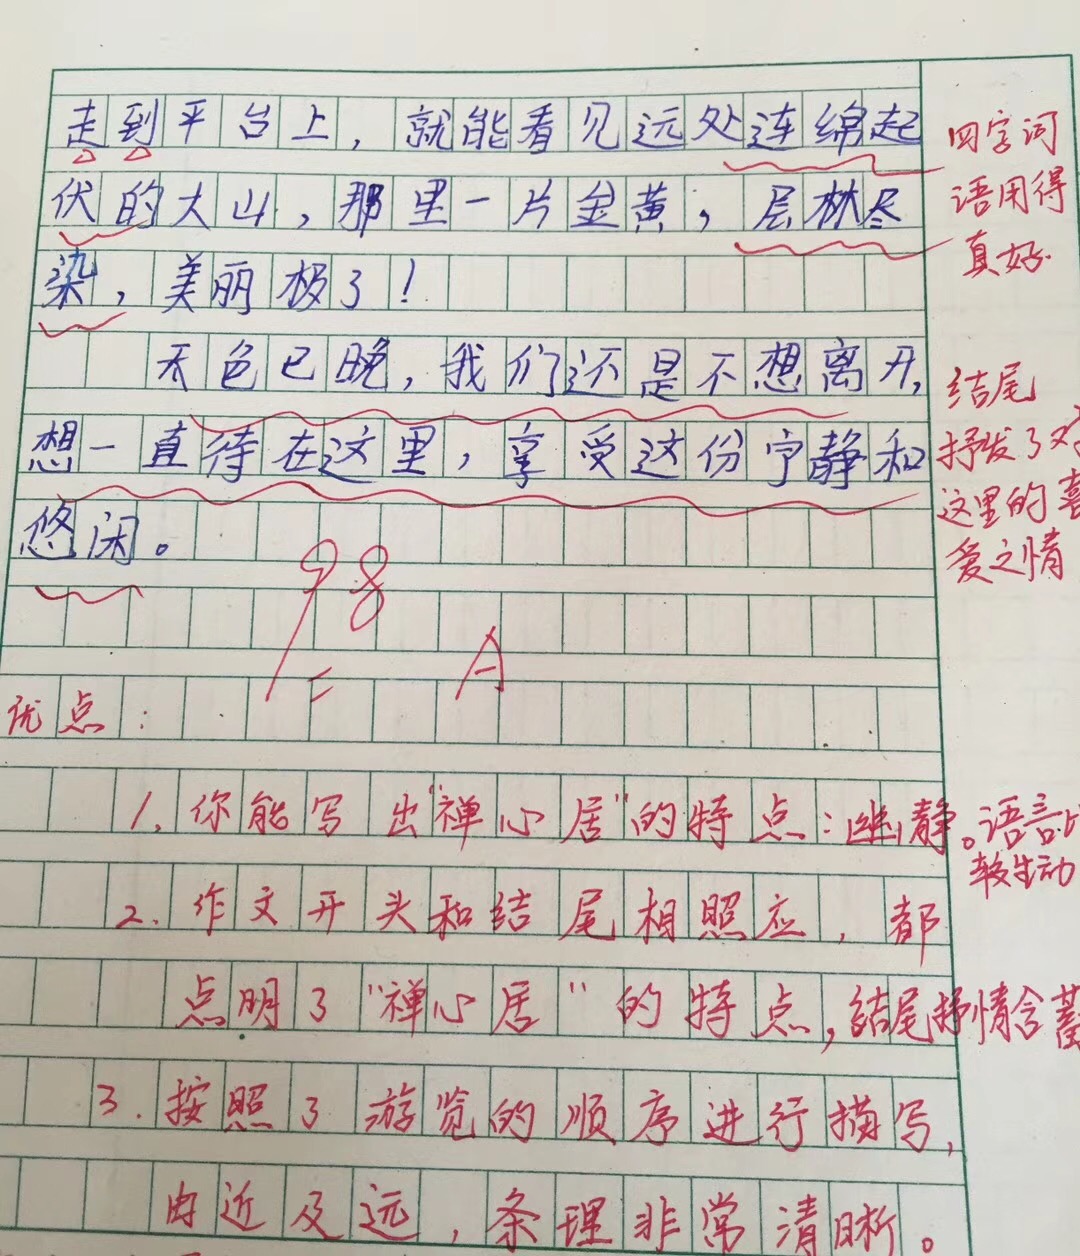 走到平台上，就能看见远处连绵起
伏的大山，那里一片金黄，层林尽
染，美丽极了！
天色已晚，我们还是不想离开，
想一直待在这里，享受这份宁静和
悠闲。
四字词
语用得
真好
结尾
抒发了对
这里的喜
爱之情
98
A
优点：
1.你能写出"禅心居"的特点：幽静。语言比
较生动
2.作文开头和结尾相照应，都
点明了"禅心居"的特点，结尾抒情含蓄
3.按照了游览的顺序进行描写，
由近及远，条理非常清晰。